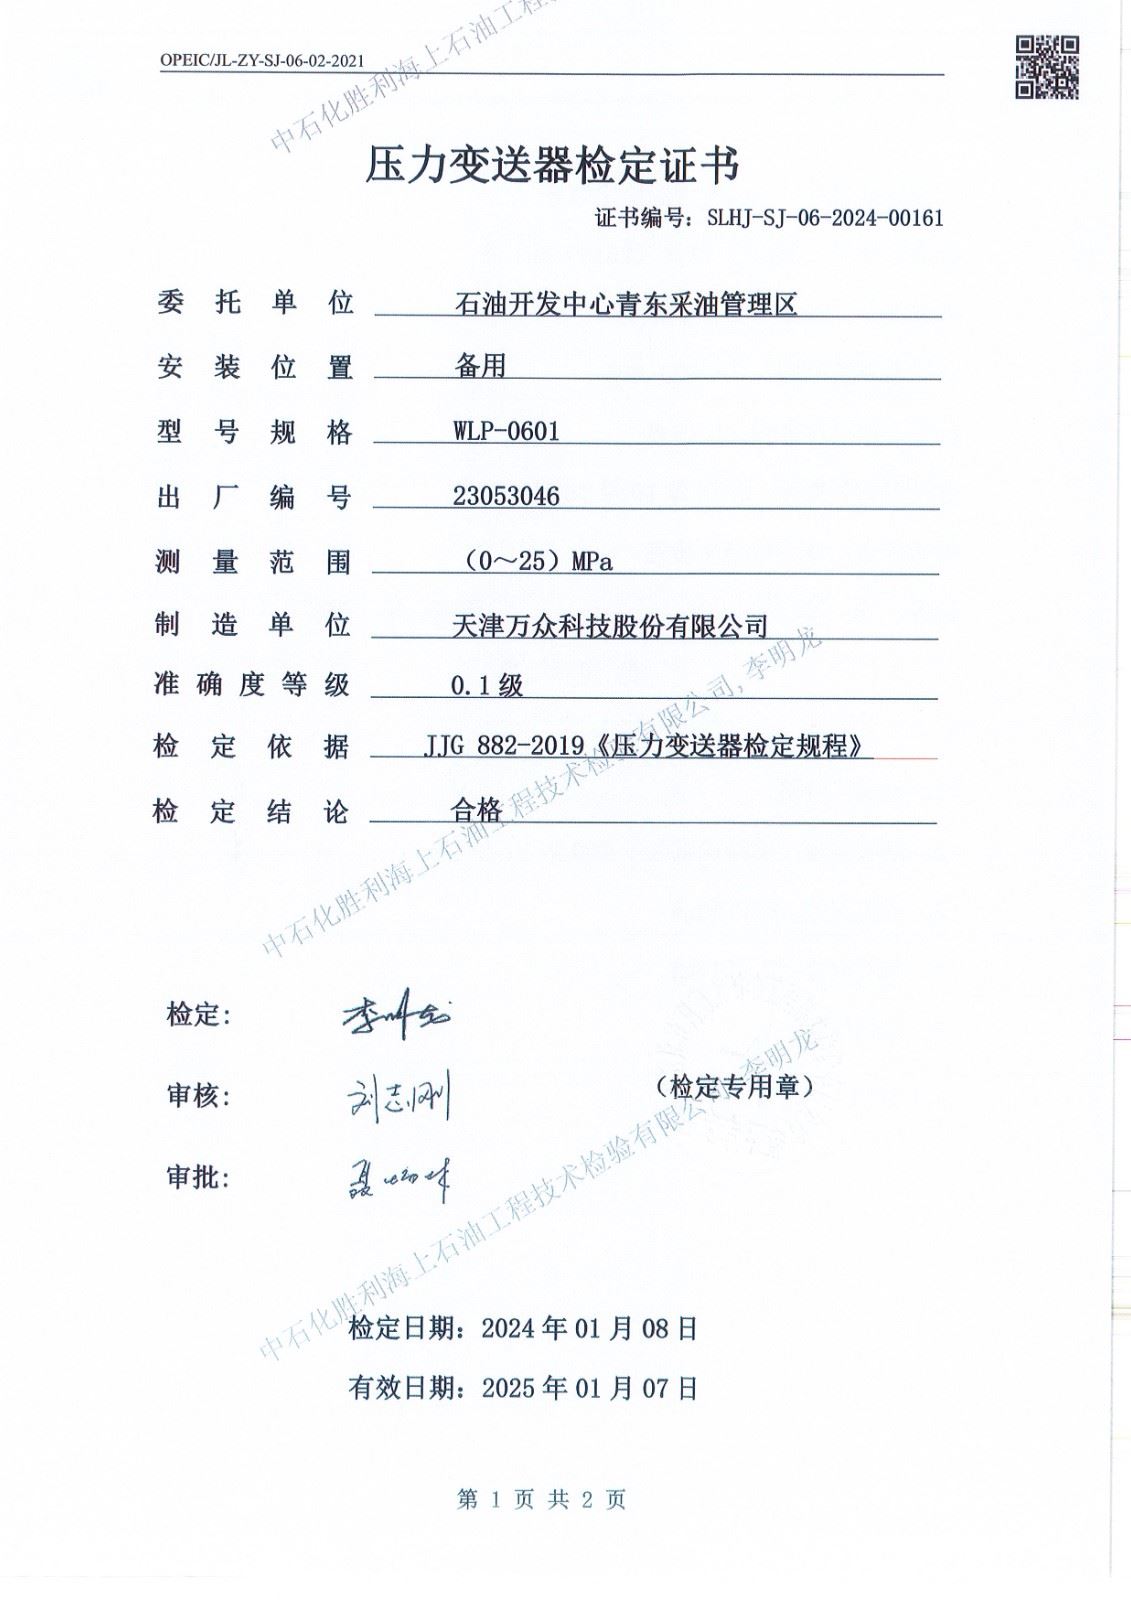 OPEIC/JL-ZY-SJ-06-02-2021
中石化胜利海上石油工程
压力变送器检定证书
证书编号：SLHJ-SJ-06-2024-00161
委托单位 石油开发中心青东采油管理区
安装位置 备用
型号规格 WLP-0601
出厂编号 23053046
测量范围 （0～25）MPa
制造单位 天津万众科技股份有限公司
准确度等级 0.1级
检定依据 JJG 882-2019《压力变送器检定规程》
检定结论 合格
中石化胜利海上石油工程技术检验有限公司, 李明龙
检定： 李明龙
审核： 刘志刚
（检定专用章）
审批：
中石化胜利海上石油工程技术检验有限公司, 李明龙
检定日期：2024年01月08日
有效日期：2025年01月07日
第 1 页 共 2 页